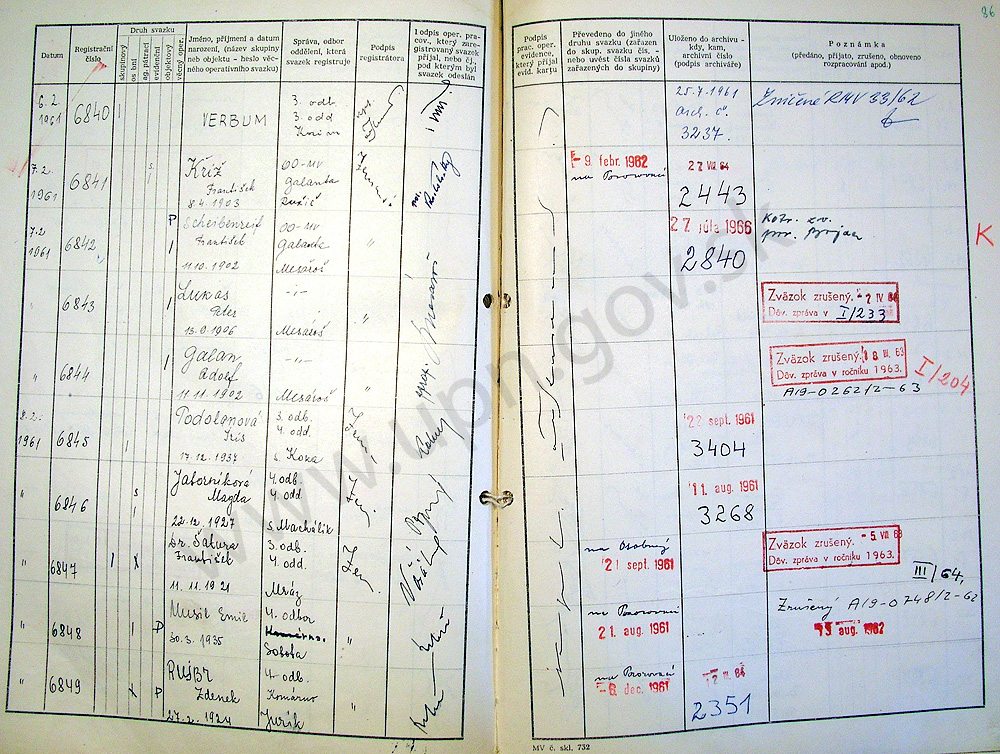 86
Datum
Registrační
číslo
Druh svazku
skupinový
osobní
ag. pátrací
evidenční
objektový
věcný oper.
Jméno, příjmení a datum
narození, (název skupiny
neb objektu - heslo věc-
ného operativního svazku)
Správa, odbor
oddělení, která
svazek registruje
Podpis
registrátora
Podpis oper. pra-
cov., který zare-
gistrovaný svazek
přijal, nebo čj.,
pod kterým byl
svazek odeslán
Podpis
prac. oper.
evidence,
který přijal
evid. kartu
Převedeno do jiného
druhu svazku (zařazen
do skup. svazku čís. -
nebo uvést čísla svazků
zařazených do skupiny)
Uloženo do archivu -
kdy, kam,
archivní číslo
(podpis archiváře)
Poznámka
(předáno, přijato, zrušeno, obnoveno
rozpracování apod.)
6.2.
1961 6840 VERBUM
3. odb.
3. odd
25.7.1961
Arch. č.
3237.
Zničené RMV 33/62
7.2.
1961 6841
Kríž
František
8.4.1903
OO-MV
Galanta
-9. febr. 1962
na Pozorovací
27 VII 64
2443
7.2
1961 6842 P
Scheibenreif
František
11.10.1902
OO-MV
Galanta
Mesároš
"
27 júla 1966
2840
K
" 6843
Lukas
Peter
13.9.1906
-"-
Mesároš
"
Zväzok zrušený. -2 IV 64
Dôv. zpráva v I/233
" 6844
Galan
Adolf
11.11.1902
-"-
Mesároš
"
Zväzok zrušený. 18 III. 63
Dôv. zpráva v ročníku 1963.
A19-0262/2-63
I/204
8.2.
1961 6845
Podolanová
Iris
17.12.1937
3. odb.
4. odd.
s. Koza
22 sept. 1961
3404
" 6846 s
Jaborníková
Magda
22.12.1927
4. odb.
4. odd
s. Machálik
11 aug. 1961
3268
" 6847 x
Dr. Šatura
František
11.11.1921
3. odb.
4. odd.
Mráz
na Osobný
21 sept. 1961
Zväzok zrušený. -5 VII 63
Dôv. zpráva v ročníku 1963.
III/64,
" 6848 P
Musil Emil
30.3.1935
4. odbor
Komárno.
Sobota
"
na Pozorovací
21. aug. 1961
Zrušený A19-0748/2-62
13 aug. 1962
" 6849 x P
Zdenek
27.2.1924
4. odb.
Komárno
Jurík
"
na Pozorovací
-8 dec. 1961
2351
MV č. skl. 732
www.upn.gov.sk